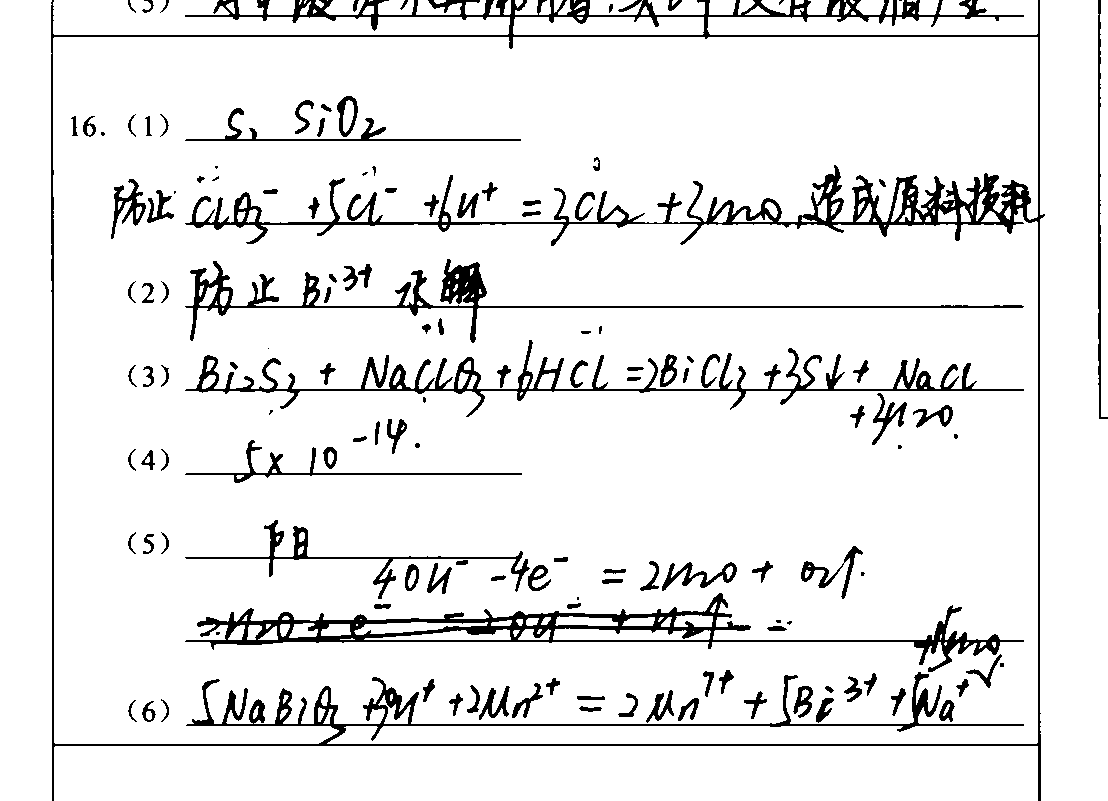 16. (1) S、SiO₂
防止 ClO₃⁻ + 5Cl⁻ + 6H⁺ = 3Cl₂ + 3H₂O. 造成原料损耗
(2) 防止 Bi³⁺ 水解
(3) Bi₂S₃ + NaClO₃ + 6HCl = 2BiCl₃ + 3S↓ + NaCl
+3H₂O.
(4) 5×10⁻¹⁴.
(5) 阳
4OH⁻ - 4e⁻ = 2H₂O + O₂↑.
2H₂O + e⁻ = 2OH⁻ + H₂↑
+H₂O
(6) 5NaBiO₃ + H⁺ + 2Mn²⁺ = 2Mn⁷⁺ + 5Bi³⁺ + 5Na⁺